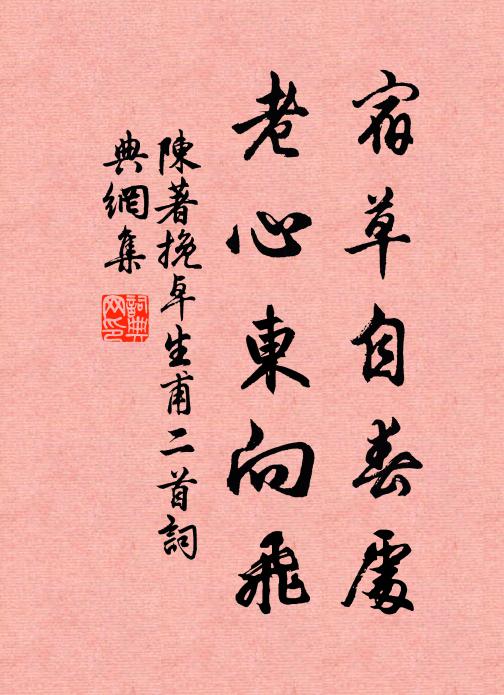 宿草自春處
老心東向飛
陳著挽卓生甫二首詞
典網集
詞典网印